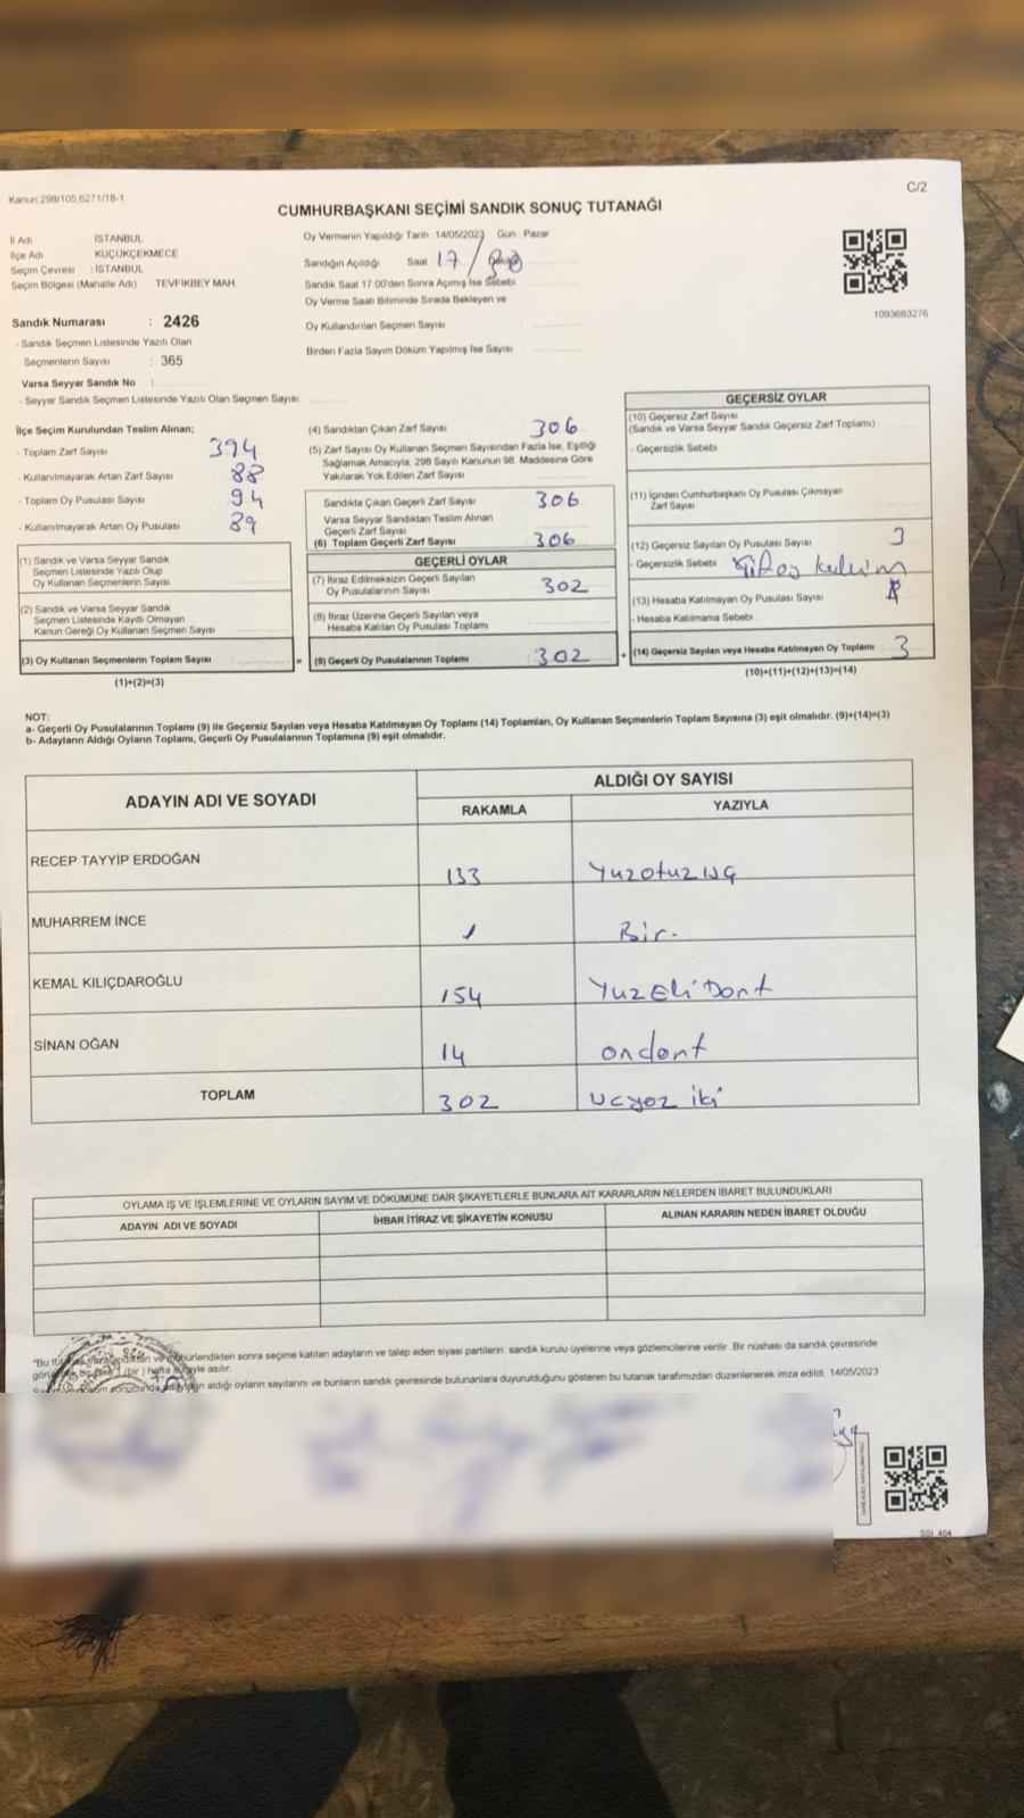 Kanun: 298/105,6271/18-1
C/2
CUMHURBAŞKANI SEÇİMİ SANDIK SONUÇ TUTANAĞI
İl Adı İSTANBUL
İlçe Adı KÜÇÜKÇEKMECE
Seçim Çevresi : İSTANBUL
Seçim Bölgesi (Mahalle Adı) TEVFİKBEY MAH.
Oy Vermenin Yapıldığı Tarih 14/05/2023 Gün Pazar
Sandığın Açıldığı Saat 17
Sandık Saat 17:00'den Sonra Açmış İse Sebebi
Oy Verme Saati Bitiminde Sırada Bekleyen ve
Oy Kullandırılan Seçmen Sayısı
Birden Fazla Sayım Döküm Yapılmış İse Sayısı
1093683276
Sandık Numarası : 2426
- Sandık Seçmen Listesinde Yazılı Olan
Seçmenlerin Sayısı : 365
Varsa Seyyar Sandık No :
- Seyyar Sandık Seçmen Listesinde Yazılı Olan Seçmen Sayısı
İlçe Seçim Kurulundan Teslim Alınan;
- Toplam Zarf Sayısı 394
- Kullanılmayarak Artan Zarf Sayısı 88
- Toplam Oy Pusulası Sayısı 94
- Kullanılmayarak Artan Oy Pusulası 89
(1) Sandık ve Varsa Seyyar Sandık
Seçmen Listesinde Yazılı Olup
Oy Kullanan Seçmenlerin Sayısı
(2) Sandık ve Varsa Seyyar Sandık
Seçmen Listesinde Kayıtlı Olmayan
Kanun Gereği Oy Kullanan Seçmen Sayısı
(3) Oy Kullanan Seçmenlerin Toplam Sayısı
(1)+(2)=(3)
(4) Sandıktan Çıkan Zarf Sayısı 306
(5) Zarf Sayısı Oy Kullanan Seçmen Sayısından Fazla İse, Eşitliği
Sağlamak Amacıyla, 298 Sayılı Kanunun 98. Maddesine Göre
Yakılarak Yok Edilen Zarf Sayısı
Sandıkta Çıkan Geçerli Zarf Sayısı 306
Varsa Seyyar Sandıktan Teslim Alınan
Geçerli Zarf Sayısı
(6) Toplam Geçerli Zarf Sayısı 306
GEÇERLİ OYLAR
(7) İtiraz Edilmeksizin Geçerli Sayılan
Oy Pusulalarının Sayısı 302
(8) İtiraz Üzerine Geçerli Sayılan veya
Hesaba Katılan Oy Pusulası Toplamı
= (9) Geçerli Oy Pusulalarının Toplamı 302
GEÇERSİZ OYLAR
(10) Geçersiz Zarf Sayısı
(Sandık ve Varsa Seyyar Sandık Geçersiz Zarf Toplamı)
- Geçersizlik Sebebi
(11) İçinden Cumhurbaşkanı Oy Pusulası Çıkmayan
Zarf Sayısı
(12) Geçersiz Sayılan Oy Pusulası Sayısı 3
- Geçersizlik Sebebi
(13) Hesaba Katılmayan Oy Pusulası Sayısı
- Hesaba Katılmama Sebebi
+ (14) Geçersiz Sayılan veya Hesaba Katılmayan Oy Toplamı 3
(10)+(11)+(12)+(13)=(14)
NOT:
a- Geçerli Oy Pusulalarının Toplamı (9) ile Geçersiz Sayılan veya Hesaba Katılmayan Oy Toplamı (14) Toplamları, Oy Kullanan Seçmenlerin Toplam Sayısına (3) eşit olmalıdır. (9)+(14)=(3)
b- Adayların Aldığı Oyların Toplamı, Geçerli Oy Pusulalarının Toplamına (9) eşit olmalıdır.
ADAYIN ADI VE SOYADI
ALDIĞI OY SAYISI
RAKAMLA YAZIYLA
RECEP TAYYİP ERDOĞAN 133 Yuzotuz üç
MUHARREM İNCE 1 Bir.
KEMAL KILIÇDAROĞLU 154 YuzEliDört
SİNAN OĞAN 14 ondört
TOPLAM 302 ucyoz iki
OYLAMA İŞ VE İŞLEMLERİNE VE OYLARIN SAYIM VE DÖKÜMÜNE DAİR ŞİKAYETLERLE BUNLARA AİT KARARLARIN NELERDEN İBARET BULUNDUKLARI
ADAYIN ADI VE SOYADI İHBAR İTİRAZ VE ŞİKAYETİN KONUSU ALINAN KARARIN NEDEN İBARET OLDUĞU
"Bu mühürlendikten sonra seçime katılan adayların ve talep eden siyasi partilerin sandık kurulu üyelerine veya gözlemcilerine verilir. Bir nüshası da sandık çevresinde
(bir) hafta süreyle asılır.
aldığı oyların sayılarını ve bunların sandık çevresinde bulunanlara duyurulduğunu gösteren bu tutanak tarafımızdan düzenlenerek imza edildi. 14/05/2023